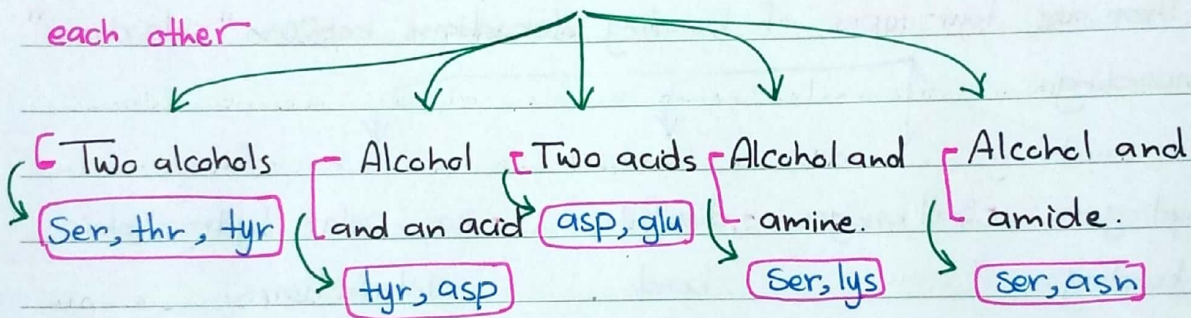 each other
Two alcohols
Ser, thr, tyr
Alcohol
and an acid
tyr, asp
Two acids
asp, glu
Alcohol and
amine.
Ser, lys
Alcohol and
amide.
ser, asn